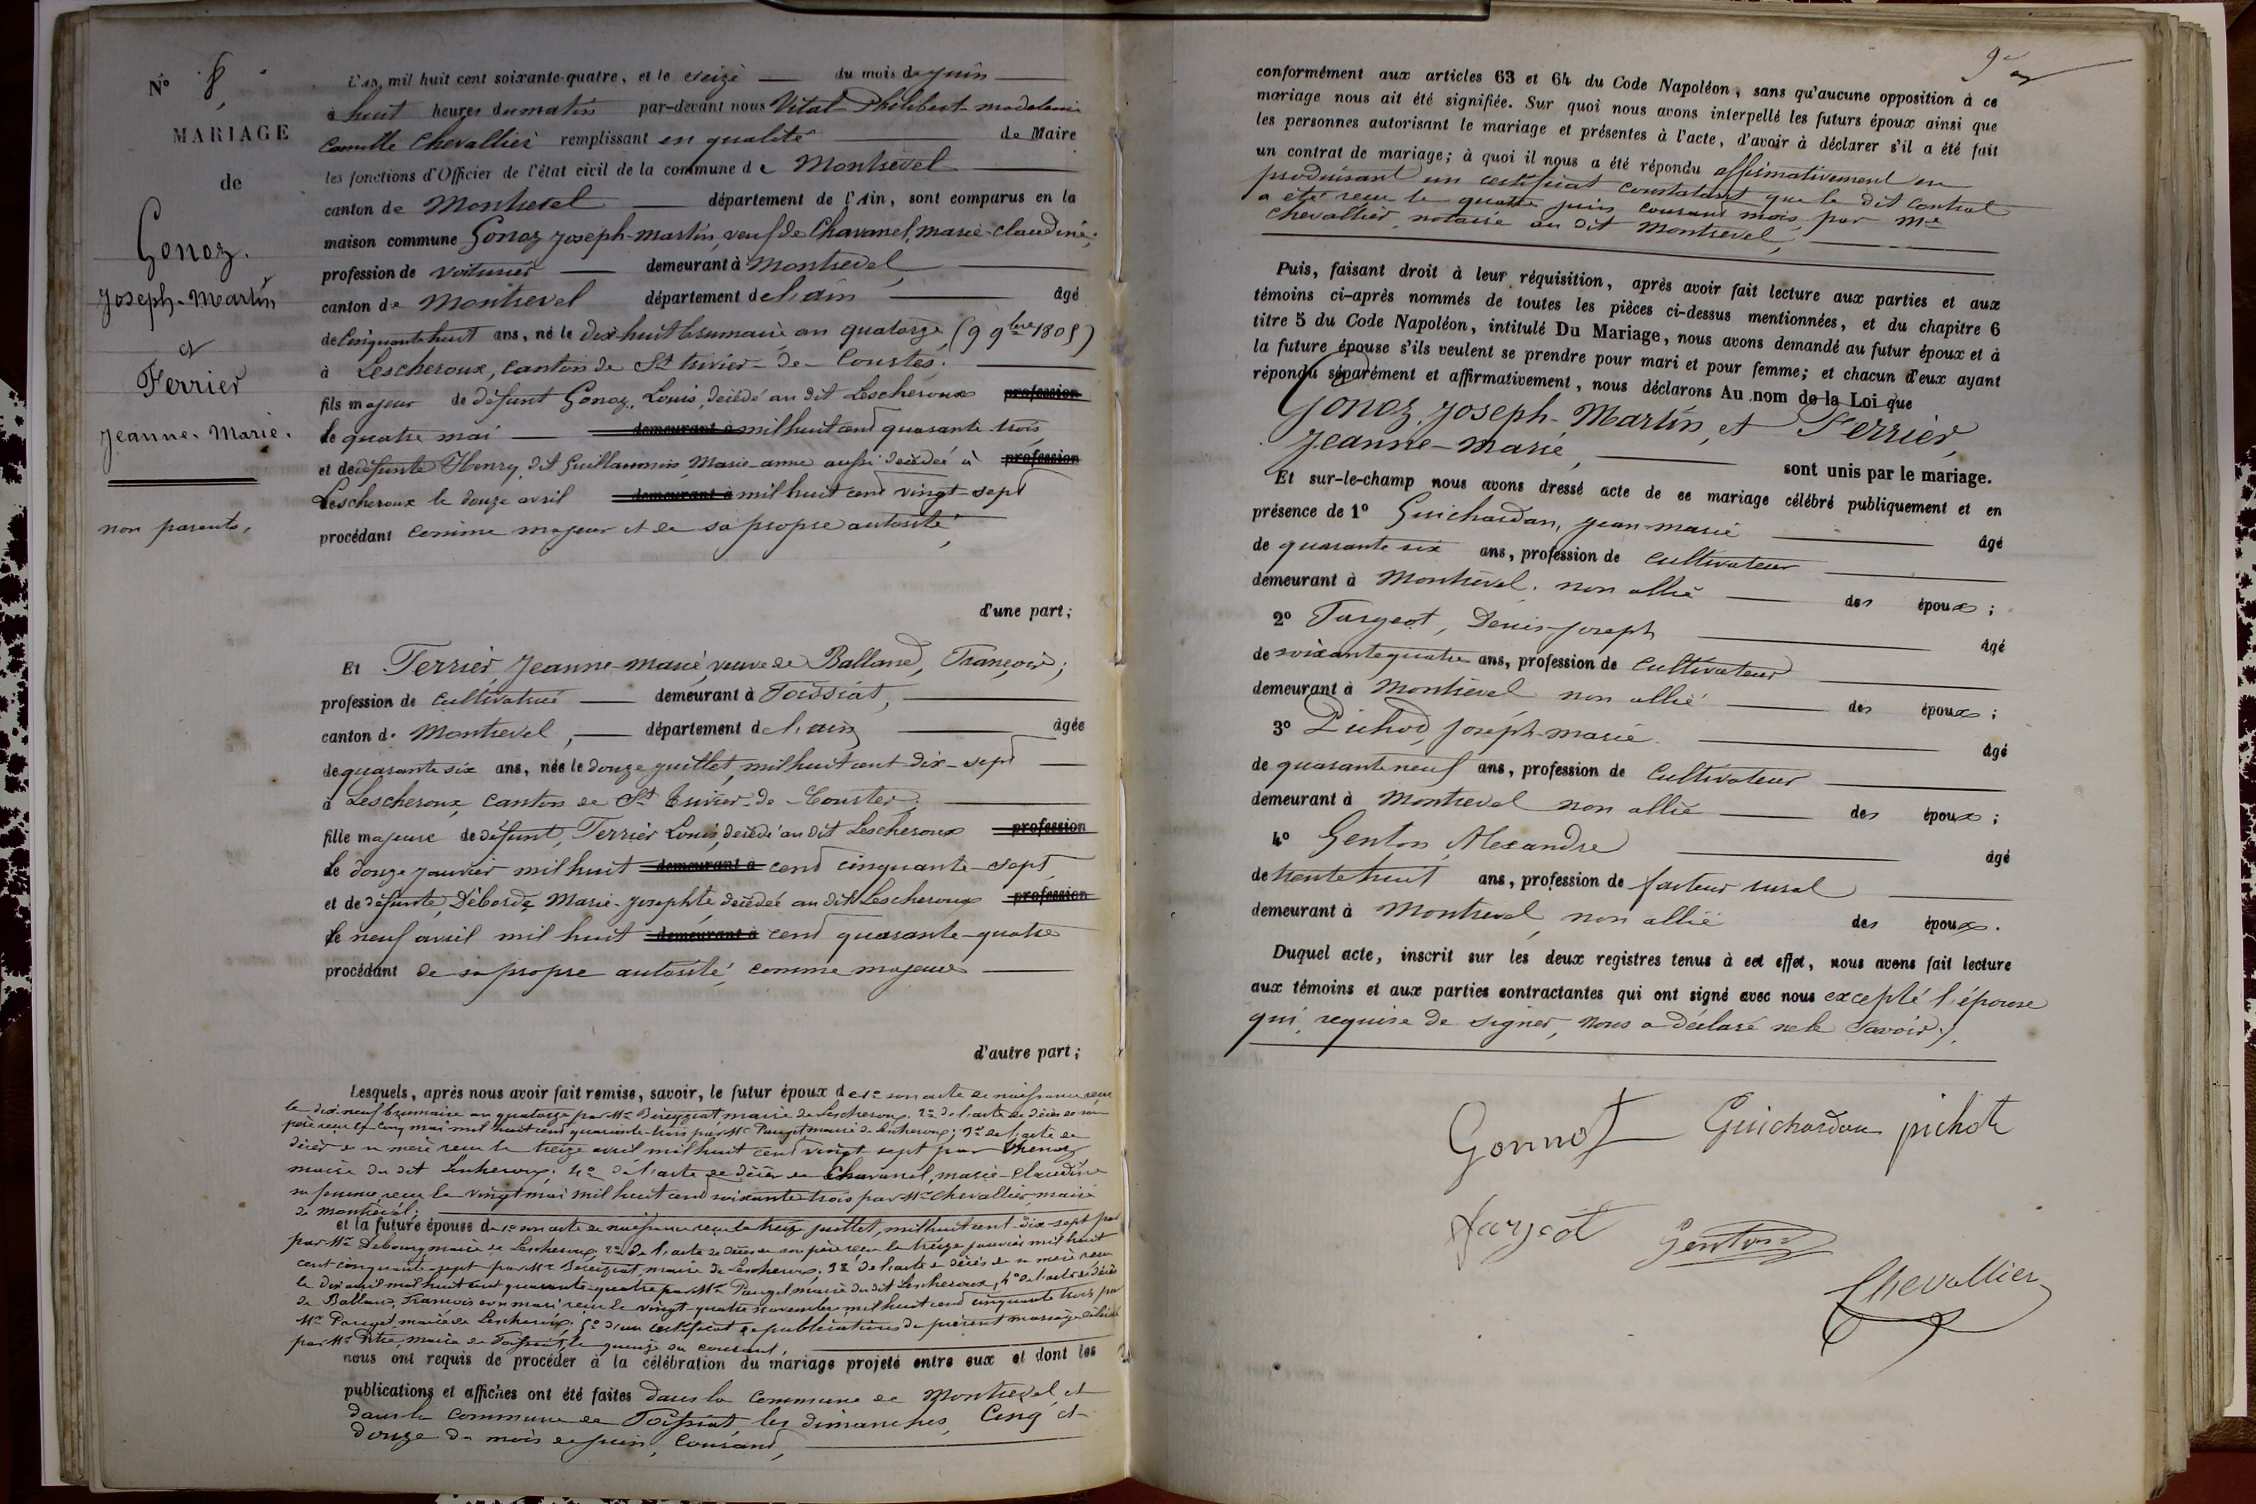 N° 8,
MARIAGE
de
Gonoz.
Joseph-Martin
et
Ferrier
Jeanne-Marie.
non parents,
L'an mil huit cent soixante-quatre, et le seize du mois de juin
à huit heures du matin par-devant nous Vital Philibert madelaine
Camille Chevallier remplissant en qualité de Maire
les fonctions d'Officier de l'état civil de la commune de Montrevel
canton de Montrevel département de l'Ain, sont comparus en la
maison commune Gonoz Joseph-Martin, veuf de Chavanel, marie-claudine;
profession de voiturier demeurant à Montrevel,
canton de Montrevel département de l'ain âgé
de Cinquante huit ans, né le dix huit brumaire an quatorze, (9 9bre 1805)
à Lescheroux, canton de St trivier-de-Courtes.
fils majeur de défunt Gonoz, Louis, décédé au dit Lescheroux profession
le quatre mai demeurant à mil huit cent quarante trois,
et de défunte Henry dit Guillaumin Marie-anne aussi décédée à profession
Lescheroux le douze avril demeurant à mil huit cent vingt-sept
procédant comme majeur et de sa propre autorité,
d'une part;
Et Ferrier, Jeanne-Marie, veuve de Balland, François;
profession de cultivatrice demeurant à Foissiat,
canton de Montrevel, département de l'ain âgée
de quarante six ans, née le douze juillet, mil huit cent dix-sept
à Lescheroux canton de St trivier-de-Courtes,
fille majeure de défunt, Ferrier Louis, décédé au dit Lescheroux profession
le douze janvier mil huit demeurant à cent cinquante-sept,
et de défunte, Déborde Marie-Josephte décédée au dit Lescheroux profession
le neuf avril mil huit demeurant à cent quarante-quatre
procédant de sa propre autorité, comme majeure
d'autre part;
Lesquels, après nous avoir fait remise, savoir, le futur époux de 1° son acte de naissance reçu
le dix-neuf brumaire an quatorze par Mr Bereyziat maire de Lescheroux. 2° de l'acte de décès de son
père reçu le cinq mai mil huit cent quarante-trois par Mr Pauget maire de Lescheroux; 3° de l'acte de
décès de sa mère reçu le treize avril mil huit cent vingt sept par
maire du dit Lescheroux; 4° de l'acte de décès de Chavanel, marie-Claudine
sa femme, reçu le vingt mai mil huit cent soixante trois par Mr Chevallier maire
de Montrevel;
et la future épouse de 1° son acte de naissance reçu le treize juillet, mil huit cent dix-sept par
par Mr Debourg maire de Lescheroux, 2° de l'acte de décès de son père reçu le treize janvier mil huit
cent cinquante-sept par Mr Bereyziat, maire de Lescheroux. 3° de l'acte de décès de sa mère reçu
le dix avril mil huit cent quarante-quatre par Mr Pauget maire du dit Lescheroux, 4° de l'acte de décès
de Balland, François son mari reçu le vingt-quatre novembre mil huit cent cinquante trois par
Mr Pauget maire de Lescheroux. 5° d'un certificat de publications du présent mariage délivré
par Mr maire de Foissiat, le quinze du courant,
nous ont requis de procéder à la célébration du mariage projeté entre eux et dont les
publications et affiches ont été faites dans la commune de Montrevel, et
dans la commune de Foissiat, les dimanches, Cinq et
douze du mois de juin, courant,
9
conformément aux articles 63 et 64 du Code Napoléon, sans qu'aucune opposition à ce
mariage nous ait été signifiée. Sur quoi nous avons interpellé les futurs époux ainsi que
les personnes autorisant le mariage et présentes à l'acte, d'avoir à déclarer s'il a été fait
un contrat de mariage; à quoi il nous a été répondu affirmativement en
produisant un certificat constatant que le dit contrat
a été reçu le quatre juin courant mois, par Me
Chevallier, notaire au dit Montrevel,
Puis, faisant droit à leur réquisition, après avoir fait lecture aux parties et aux
témoins ci-après nommés de toutes les pièces ci-dessus mentionnées, et du chapitre 6
titre 5 du Code Napoléon, intitulé Du Mariage, nous avons demandé au futur époux et à
la future épouse s'ils veulent se prendre pour mari et pour femme; et chacun d'eux ayant
répondu séparément et affirmativement, nous déclarons Au nom de la Loi que
Gonoz, Joseph-Martin, et Ferrier,
Jeanne-marie, sont unis par le mariage.
Et sur-le-champ nous avons dressé acte de ce mariage célébré publiquement et en
présence de 1° Guichardan, jean-marie âgé
de quarante six ans, profession de cultivateur
demeurant à Montrevel, non allié des époux;
2° Fargeot, Denis-Joseph âgé
de soixante quatre ans, profession de cultivateur
demeurant à Montrevel non allié des époux;
3° Pichod, Joseph-marie âgé
de quarante neuf ans, profession de Cultivateur
demeurant à Montrevel non allié des époux;
4° Genton, Alexandre âgé
de trente huit ans, profession de facteur rural
demeurant à Montrevel, non allié des époux.
Duquel acte, inscrit sur les deux registres tenus à cet effet, nous avons fait lecture
aux témoins et aux parties contractantes qui ont signé avec nous excepté l'épouse
qui, requise de signer, nous a déclaré ne le savoir.
Gonnot Guichardan pichot
fargeot Genton
Chevallier